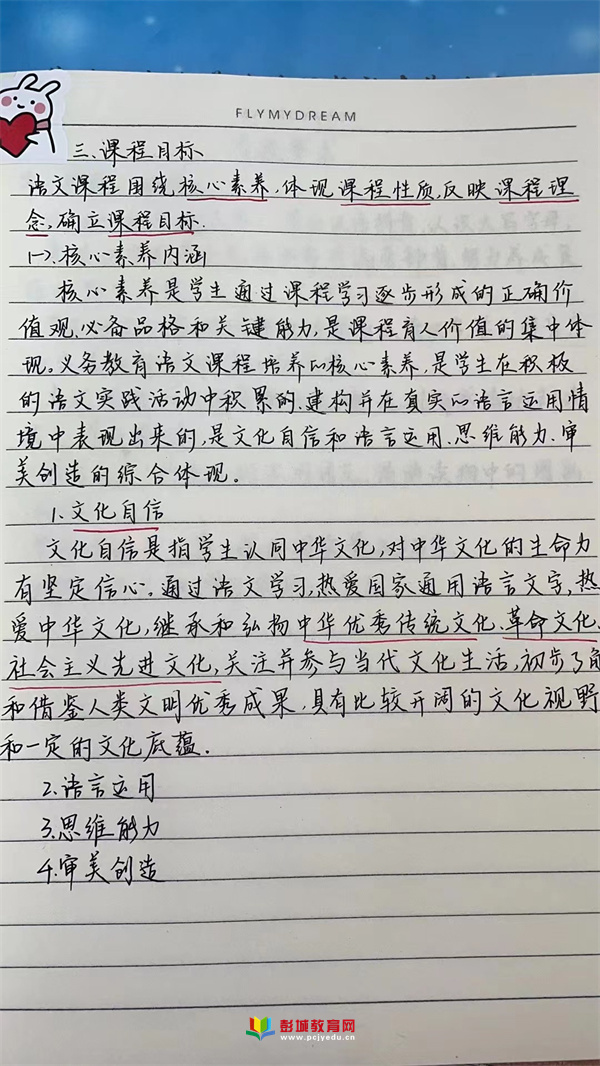 FLYMYDREAM
三、课程目标
语文课程围绕核心素养,体现课程性质,反映课程理
念,确立课程目标.
(一).核心素养内涵
核心素养是学生通过课程学习逐步形成的正确价
值观、必备品格和关键能力,是课程育人价值的集中体
现。义务教育语文课程培养的核心素养,是学生在积极
的语文实践活动中积累的、建构并在真实的语言运用情
境中表现出来的,是文化自信和语言运用、思维能力、审
美创造的综合体现。
1.文化自信
文化自信是指学生认同中华文化,对中华文化的生命力
有坚定信心。通过语文学习,热爱国家通用语言文字,热
爱中华文化,继承和弘扬中华优秀传统文化、革命文化、
社会主义先进文化,关注并参与当代文化生活,初步了解
和借鉴人类文明优秀成果,具有比较开阔的文化视野
和一定的文化底蕴.
2.语言运用
3.思维能力
4.审美创造
彭城教育网
www.pcjyedu.cn